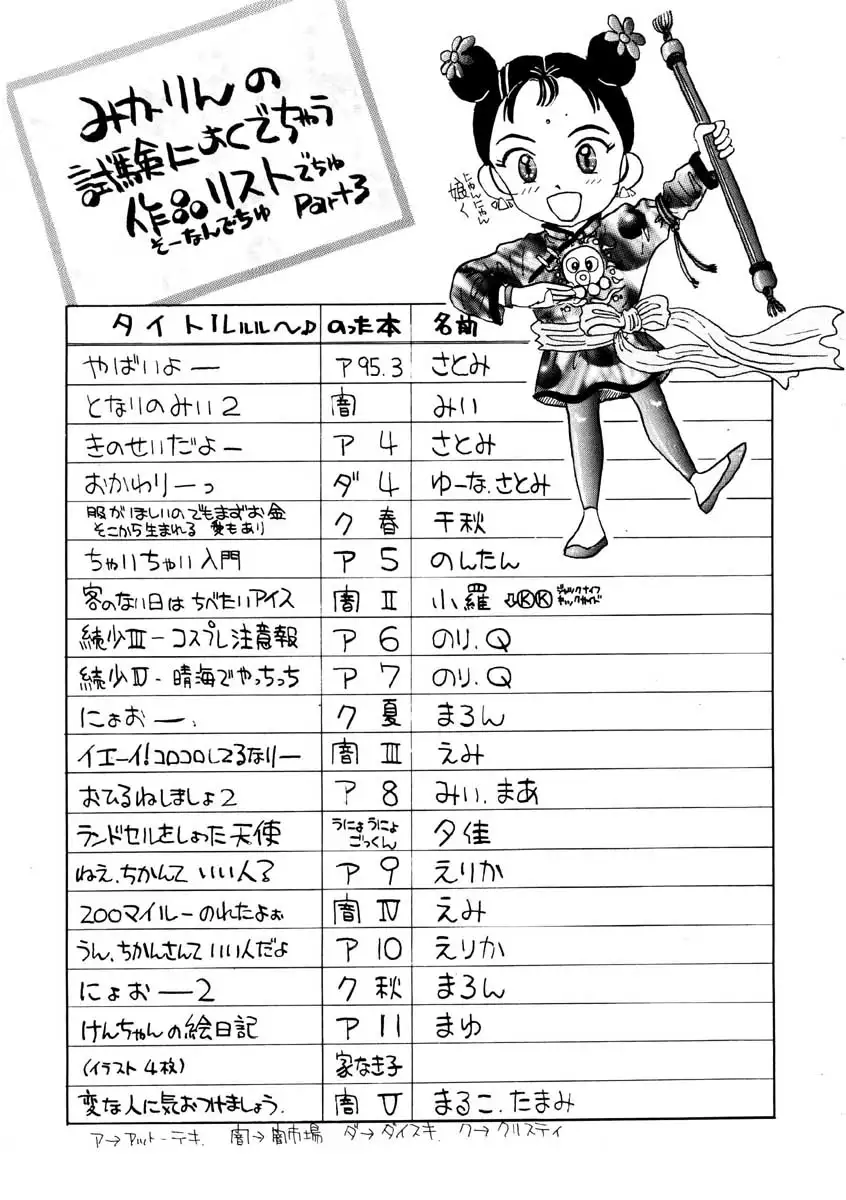 みかりんの
試験によくでちゃう
作品リストでちゅ
そーなんでちゅ Part3
にゃんにゃん
娘々
タイトルルルル〜♪ のった本 名前
やばいよー ア95.3 さとみ
となりのみい2 闇 みい
きのせいだよー ア 4 さとみ
おかわりーっ ダ 4 ゆーな、さとみ
服がほしいのでもまずお金
そこから生まれる 愛もあり ク 春 千秋
ちゃいちゃい入門 ア 5 のんたん
客のない日は ちべたいアイス 闇 Ⅱ 小羅 ⓀⓀ
続少Ⅲ-コスプレ注意報 ア 6 のり、Q
続少Ⅳ-晴海でやっちっち ア 7 のり、Q
にょおー、 ク 夏 まろん
イエーイ!コロコロしてるなりー 闇 Ⅲ えみ
おひるねしましょ2 ア 8 みい、まあ
ランドセルをしょった天使 うにょうにょ
ごっくん 夕佳
ねえ、ちかんて いい人? ア 9 えりか
200マイルーのれたよぉ 闇 Ⅳ えみ
うん、ちかんさんて いい人だよ ア 10 えりか
にょおー2 ク 秋 まろん
けんちゃんの絵日記 ア 11 まゆ
(イラスト 4枚) 家なき子
変な人に気おつけましょう. 闇 Ⅴ まるこ、たまみ
ア→アットーテキ. 闇→闇市場 ダ→ダイスキ. ク→クリスティ